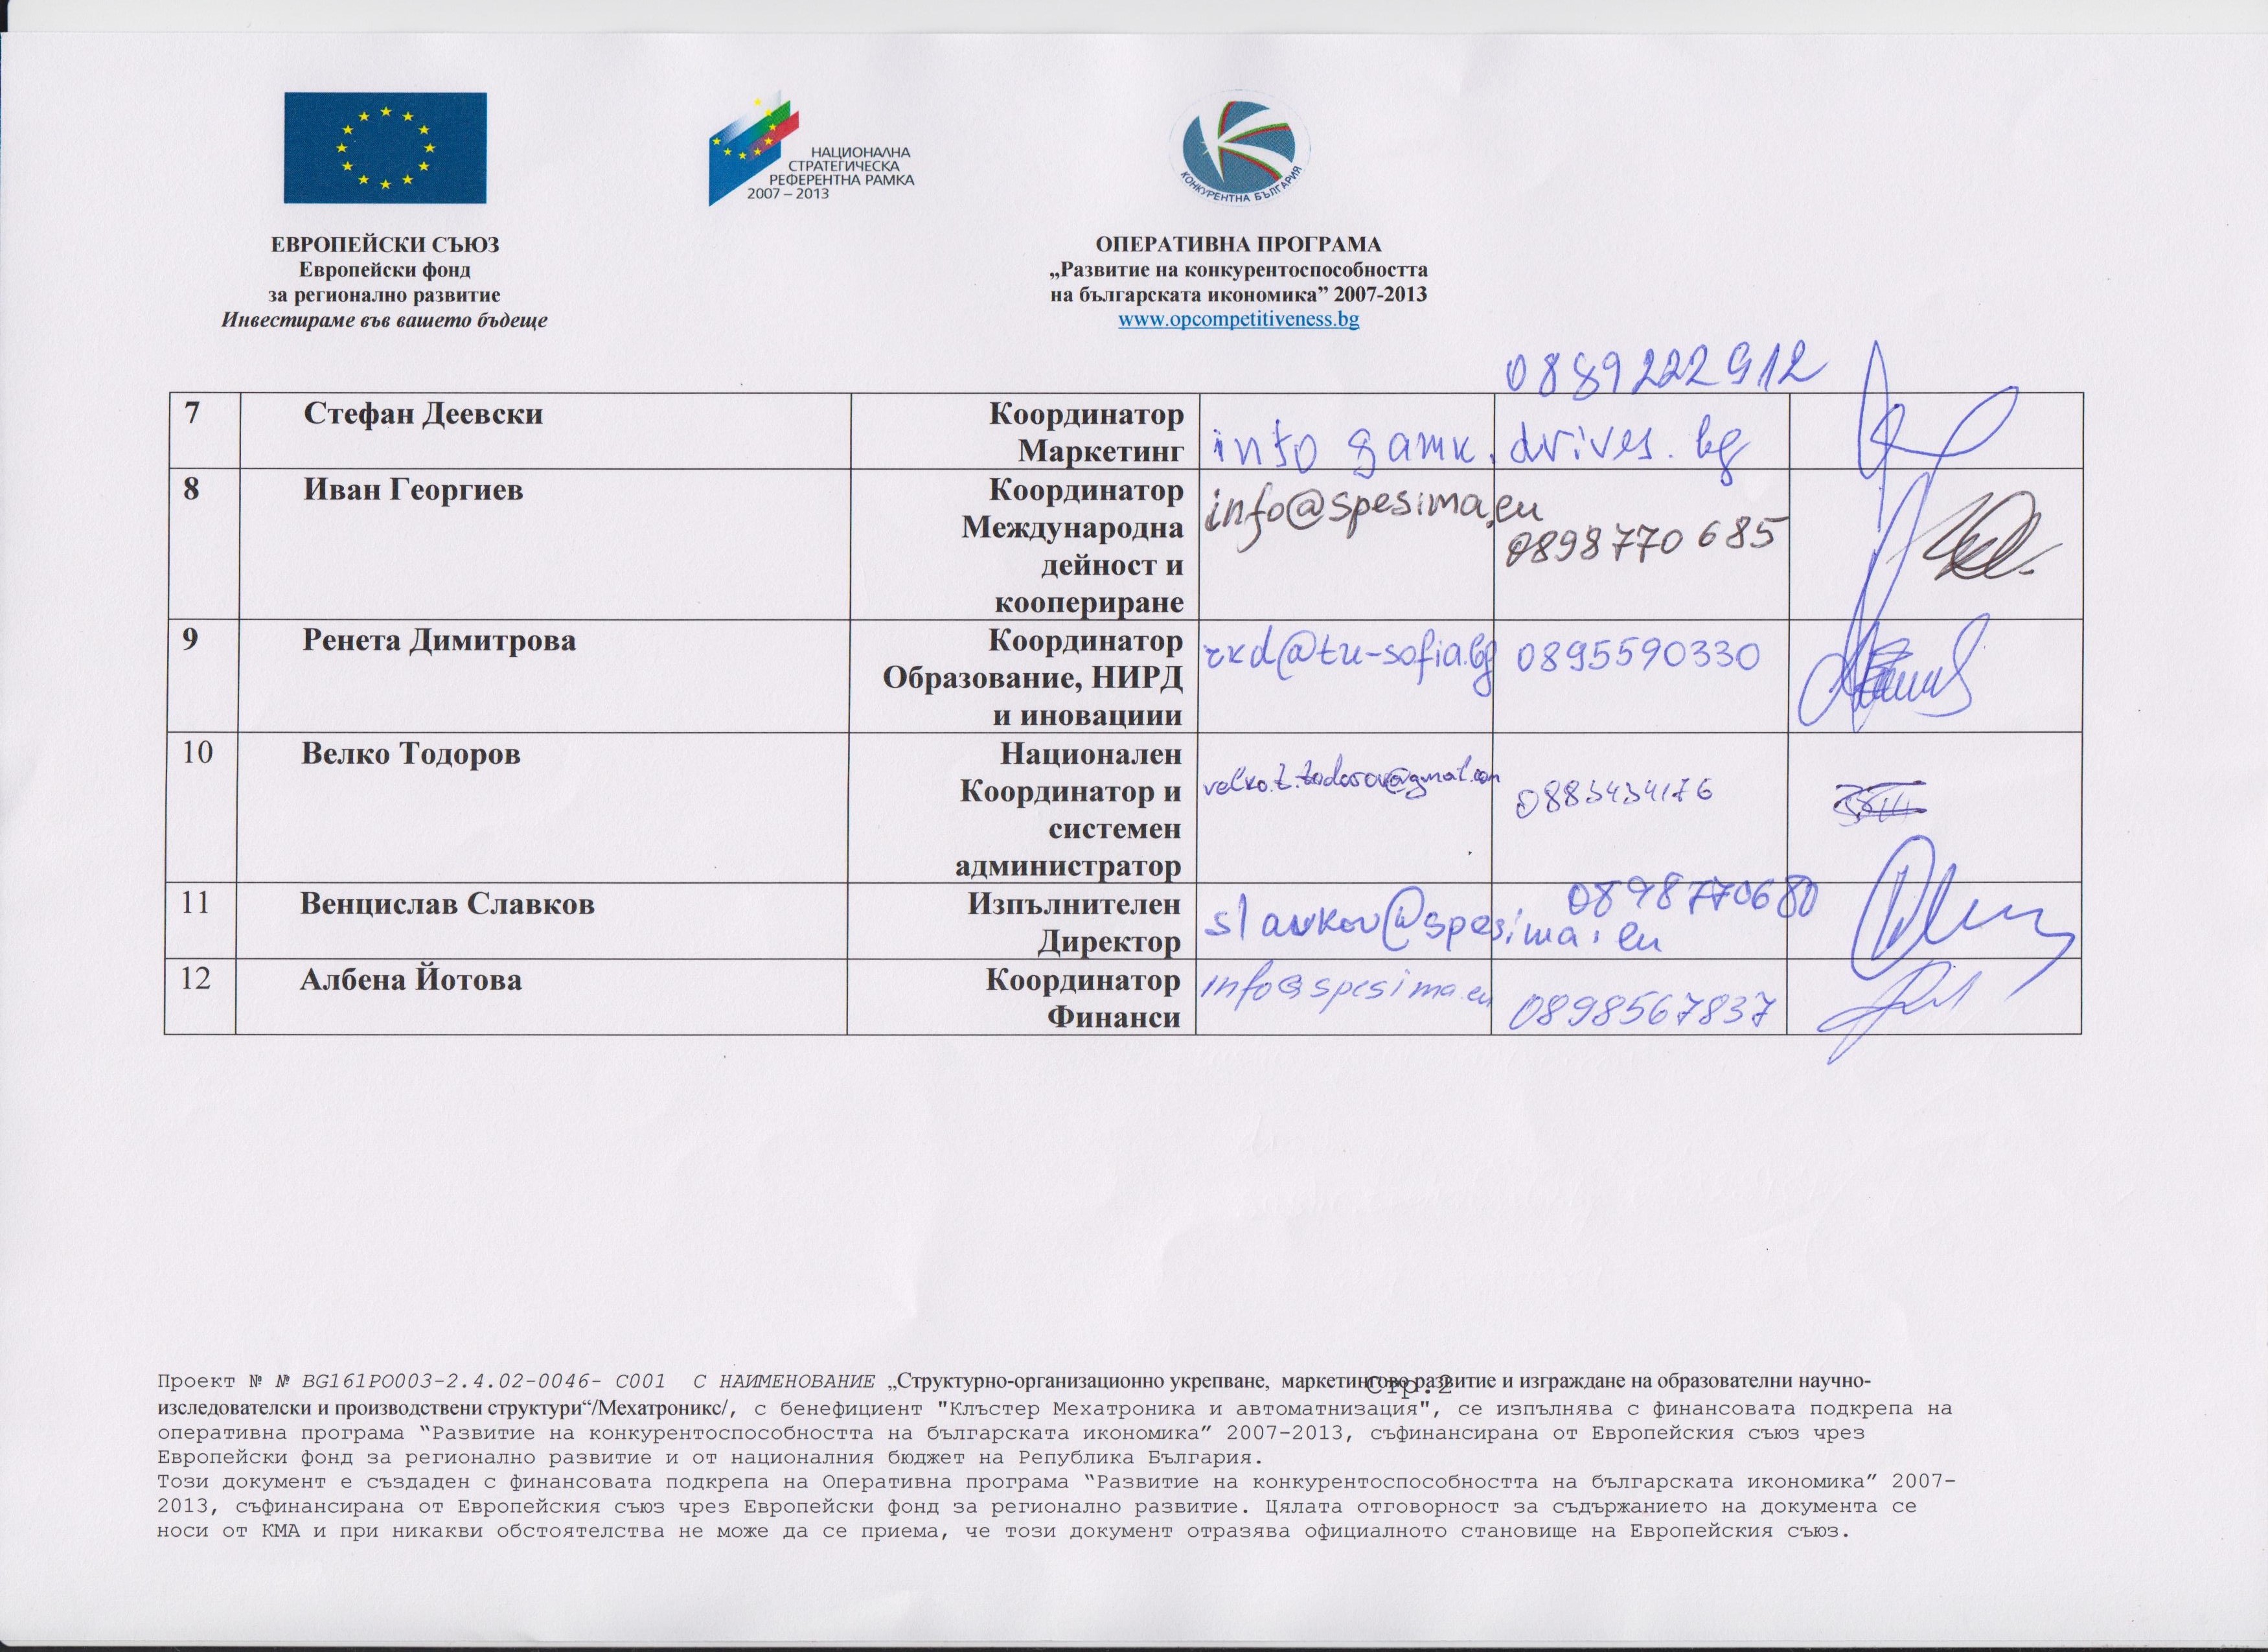 НАЦИОНАЛНА
СТРАТЕГИЧЕСКА
РЕФЕРЕНТНА РАМКА
2007 – 2013
КОНКУРЕНТНА БЪЛГАРИЯ
ЕВРОПЕЙСКИ СЪЮЗ
Европейски фонд
за регионално развитие
Инвестираме във вашето бъдеще
ОПЕРАТИВНА ПРОГРАМА
„Развитие на конкурентоспособността
на българската икономика” 2007-2013
www.opcompetitiveness.bg
0889222912
7 Стефан Деевски Координатор
Маркетинг info @ amk.drives.bg
8 Иван Георгиев Координатор info@spesima.eu
Международна 0898770685
дейност и
коопериране
9 Ренета Димитрова Координатор rkd@tu-sofia.bg 0895590330
Образование, НИРД
и иновациии
10 Велко Тодоров Национален
Координатор и velko.t.todorov@gmail.com 0883434176
системен
администратор
11 Венцислав Славков Изпълнителен 0898770680
Директор slavkov@spesima.eu
12 Албена Йотова Координатор info@spesima.eu
Финанси 0898567837
Проект № № BG161PO003-2.4.02-0046- C001 С НАИМЕНОВАНИЕ „Структурно-организационно укрепване, маркетингово развитие и изграждане на образователни научно-
Стр.2
изследователски и производствени структури“/Мехатроникс/, с бенефициент "Клъстер Мехатроника и автоматнизация", се изпълнява с финансовата подкрепа на
оперативна програма “Развитие на конкурентоспособността на българската икономика” 2007-2013, съфинансирана от Европейския съюз чрез
Европейски фонд за регионално развитие и от националния бюджет на Република България.
Този документ е създаден с финансовата подкрепа на Оперативна програма “Развитие на конкурентоспособността на българската икономика” 2007-
2013, съфинансирана от Европейския съюз чрез Европейски фонд за регионално развитие. Цялата отговорност за съдържанието на документа се
носи от КМА и при никакви обстоятелства не може да се приема, че този документ отразява официалното становище на Европейския съюз.